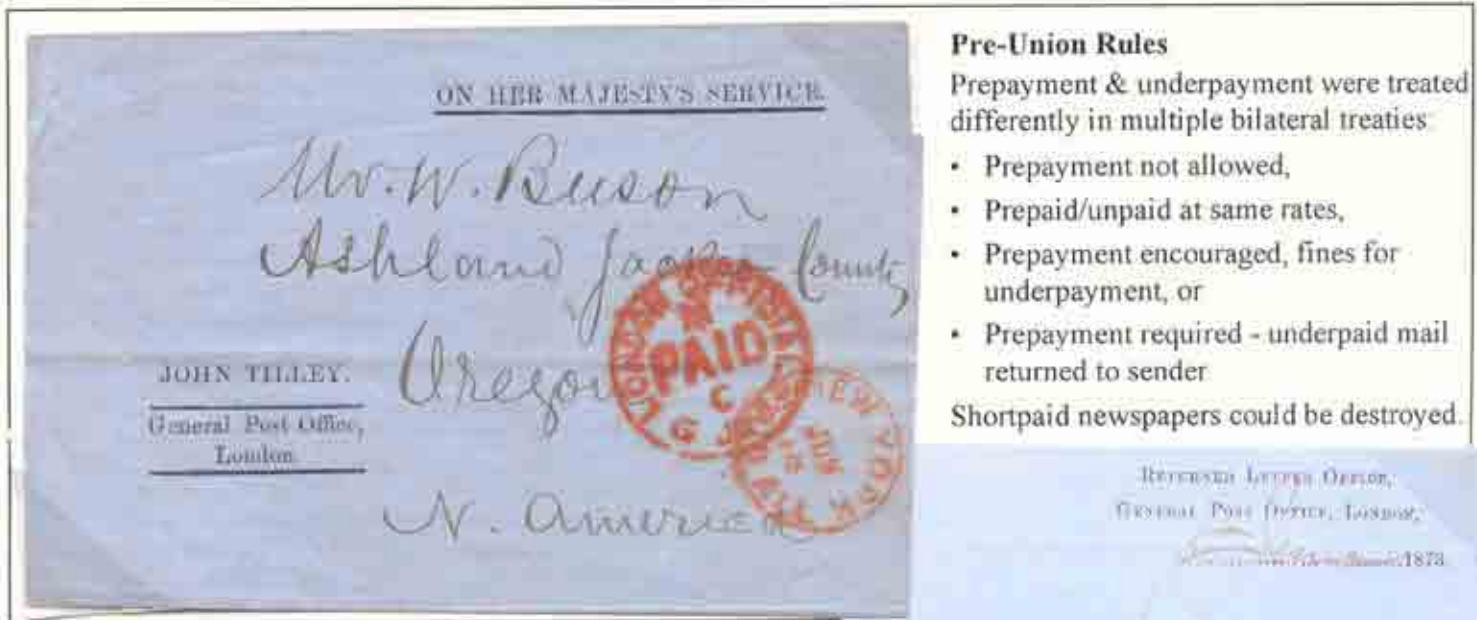 ON HER MAJESTY'S SERVICE.
Mr. W. Beeson
Ashland Jackson County
Oregon
N. America
JOHN TILLEY.
General Post Office,
London.
LONDON OFFICIAL
N
PAID
C
6 JU
NEW YORK
JUN
Pre-Union Rules
Prepayment & underpayment were treated
differently in multiple bilateral treaties:
• Prepayment not allowed,
• Prepaid/unpaid at same rates,
• Prepayment encouraged, fines for
underpayment, or
• Prepayment required - underpaid mail
returned to sender
Shortpaid newspapers could be destroyed.
RETURNED LETTER OFFICE,
GENERAL POST OFFICE, LONDON,
1873.